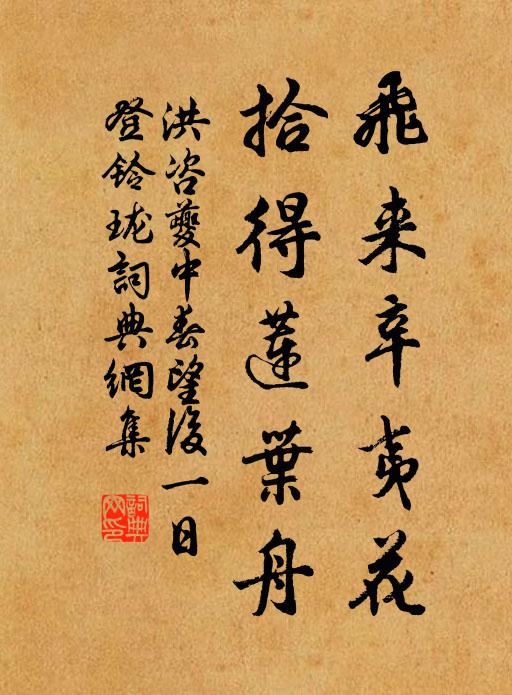 飛来辛夷花
拾得蓮葉舟
洪咨夔中春望後一日
登鈴瓏詞典網集
詞典
网印